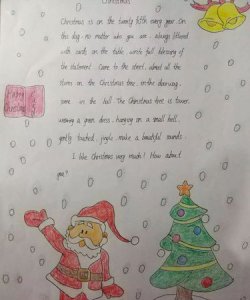 Christmas
Christmas is on the twenty fifth every year. On
this day, no matter who you are, always littered
with cards on the table, wrote full blessing of
the statement. Came to the street, almost all the
stores on the Christmas tree, in the doorway,
some in the hall. The Christmas tree is tower,
wearing a green dress, hanging on a small bell,
gently touched, jingle, make a beautiful sounds.
I like Christmas very much! How about
you?
Happy
Greeting